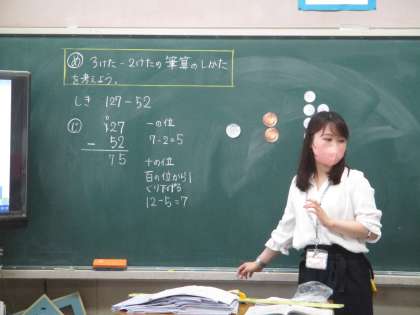 め 3けた-2けたの筆算のしかた
を考えよう。
しき 127-52
じ
127
- 52
75
一の位
7-2=5
十の位
百の位から1
くり下げる
12-5=7